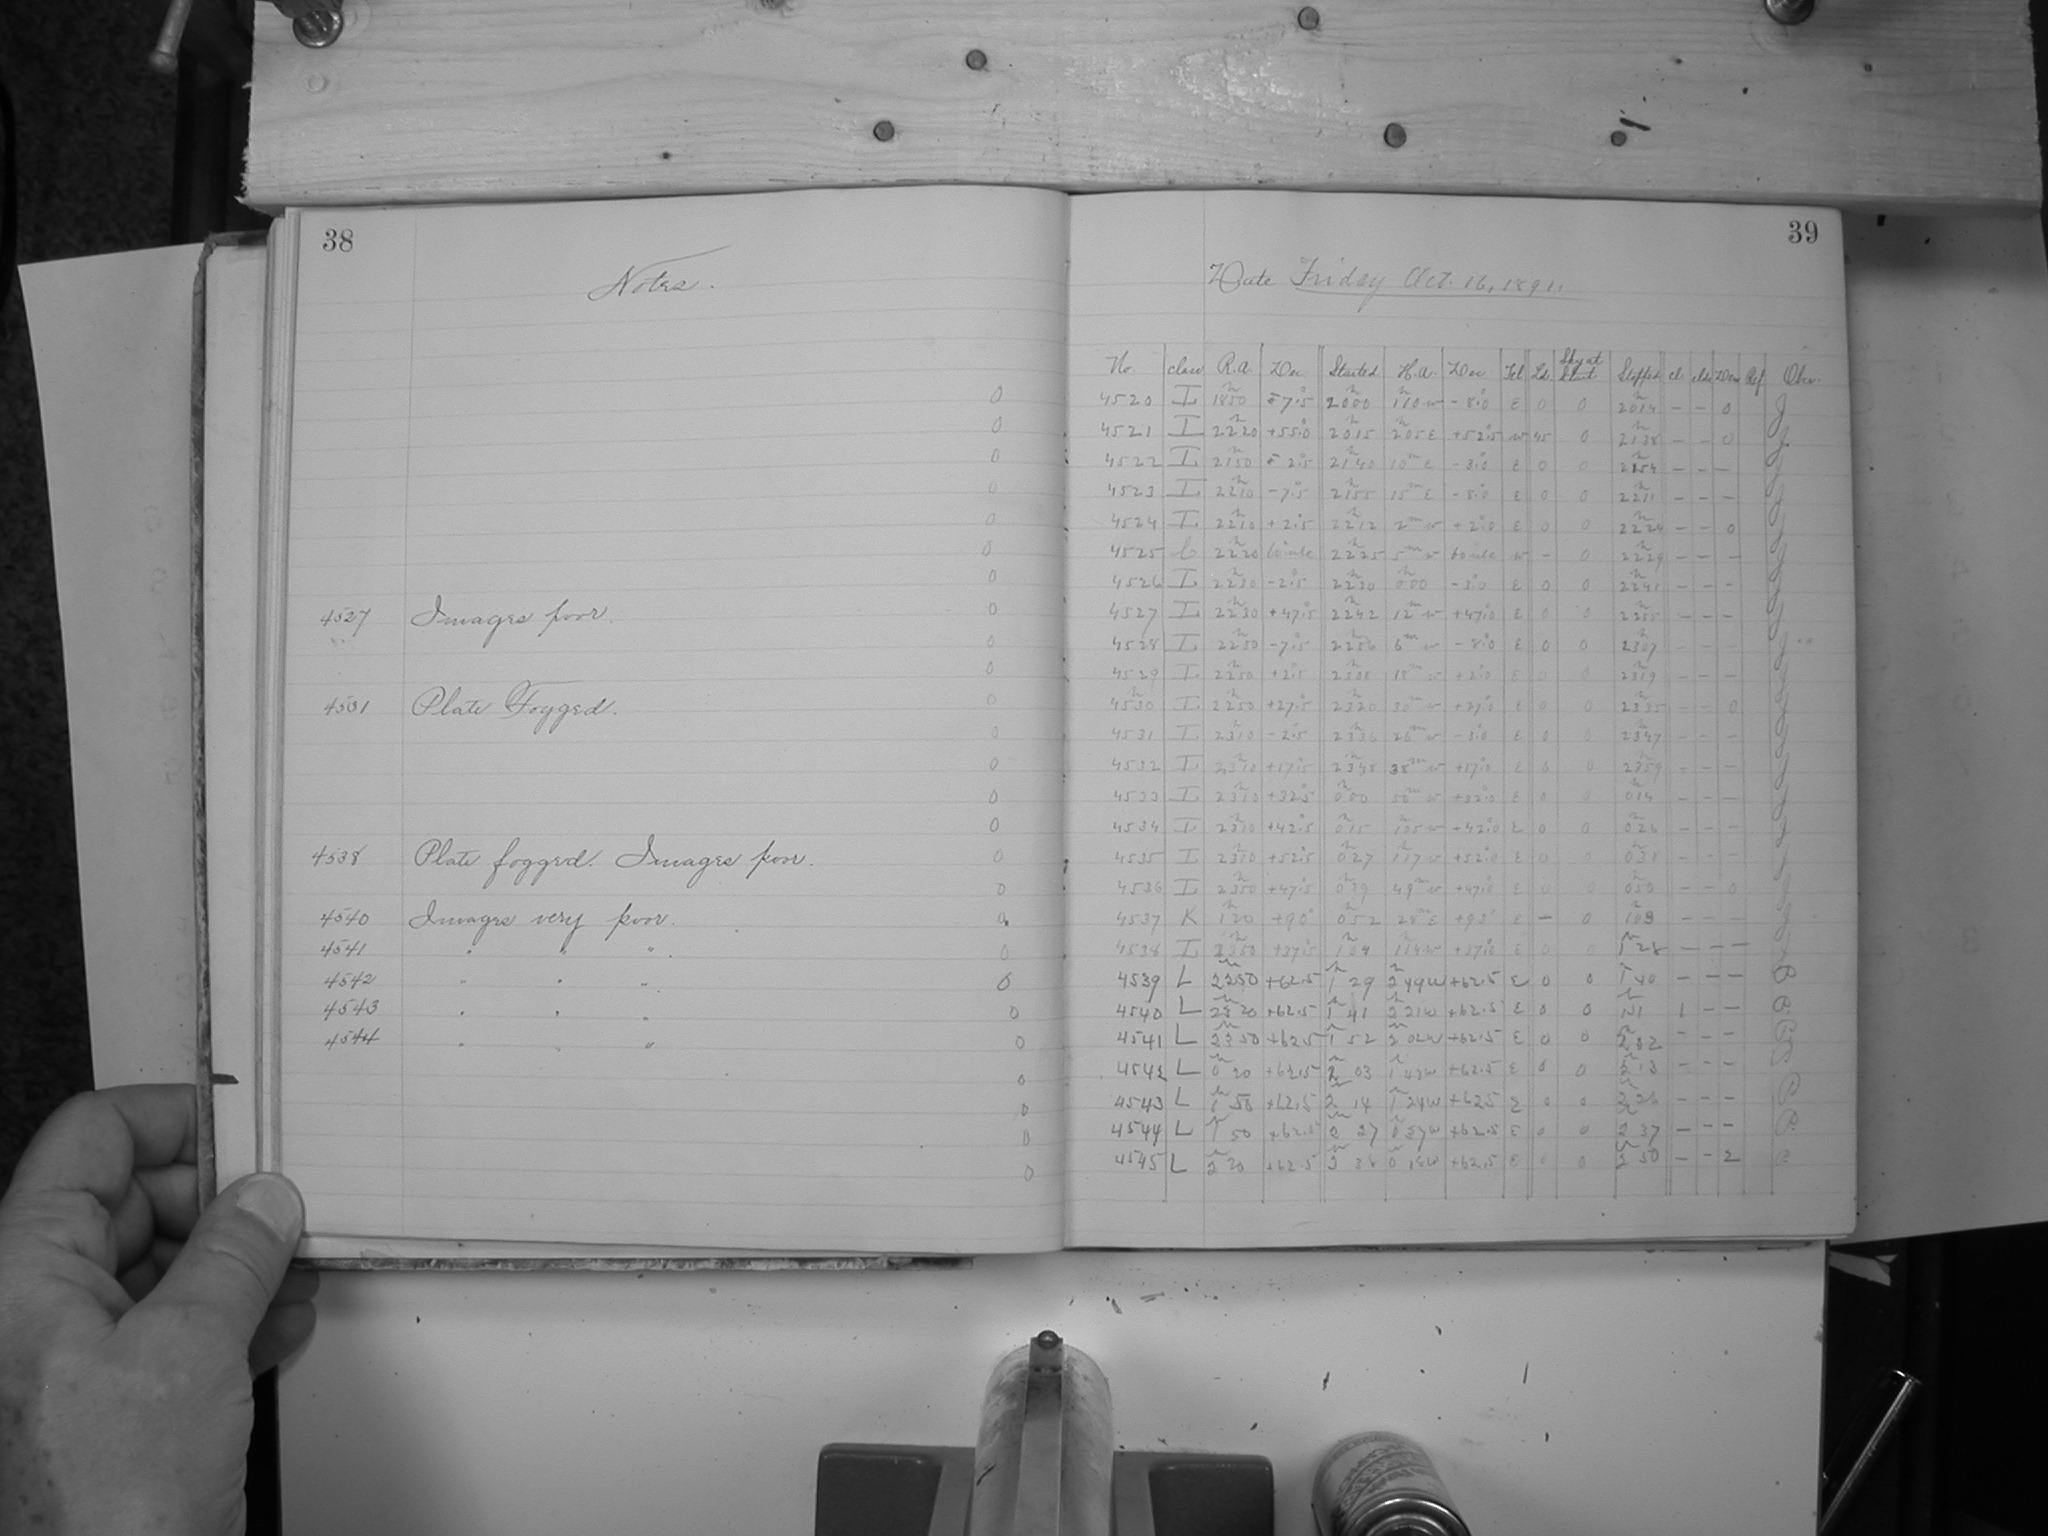 38
Notes.
4527 Images poor.
4531 Plate Fogged.
4538 Plate fogged. Images poor.
4540 Images very poor.
4541 " " "
4542 " " "
4543 " " "
4544 " " "
39
Date Friday Oct. 16, 1891.
No. class R.A. Dec. Started H.A. Dec Tel Ld Sky at Start Stopped cl. clds Dew Ref Obs.
4520 I 18h50 -7°.5 20h00 1h10 w -8°.0 E 0 0 20h14 - - 0
4521 I 22h20 +55°.0 20h15 2h05 E +52°.5 w 45 0 21h38 - - 0
4522 I 21h50 -2°.5 21h40 10m E -3°.0 E 0 0 21h54 - - -
4523 I 22h10 -7°.5 21h55 15m E -8°.0 E 0 0 22h11 - - -
4524 I 22h10 +2°.5 22h12 2m w +2°.0 E 0 0 22h24 - - 0
4525 22h20 22h25 5m w w - 0 22h29 - - -
4526 I 22h30 -2°.5 22h30 0h00 -3°.0 E 0 0 22h41 - - -
4527 I 22h30 +47°.5 22h42 12m w +47°.0 E 0 0 22h55 - - -
4528 I 22h50 -7°.5 22h56 6m w -8°.0 E 0 0 23h07 - - -
4529 I 22h50 +2°.5 23h08 18m w +2°.0 E 0 0 23h19 - - -
4530 I 22h50 +27°.5 23h20 30m w +27°.0 E 0 0 23h35 - - 0
4531 I 23h10 -2°.5 23h36 26m w -3°.0 E 0 0 23h47 - - -
4532 I 23h10 +17°.5 23h48 38m w +17°.0 E 0 0 23h59 - - -
4533 I 23h10 +32°.5 0h00 50m w +32°.0 E 0 0 0h14 - - -
4534 I 23h10 +42°.5 0h15 1h05 w +42°.0 E 0 0 0h26 - - -
4535 I 23h10 +52°.5 0h27 1h17 w +52°.0 E 0 0 0h38 - - -
4536 I 23h50 +47°.5 0h39 49m w +47°.0 E 0 0 0h50 - - 0
4537 K 1h20 +90° 0h52 28m E +90° E - 0 1h03 - - -
4538 I 23h50 +37°.5 1h04 1h14 w +37°.0 E 0 0 1h28 - - -
4539 L 22h50 +62.5 1h29 2h49 w +62.5 E 0 0 1h40 - - -
4540 L 23h20 +62.5 1h41 2h21 w +62.5 E 0 0 1h51 1 - -
4541 L 23h50 +62.5 1h52 2h02 w +62.5 E 0 0 2h02 - -
4542 L 0h20 +62.5 2h03 1h43 w +62.5 E 0 0 2h13 - - -
4543 L +62.5 2h14 1h24 w +62.5 E 0 0 2h26 - - -
4544 L 1h50 +62.5 2h27 0h37 w +62.5 E 0 0 2h37 - - -
4545 L 2h20 +62.5 2h38 0h18 w +62.5 E 0 0 2h50 - - 2